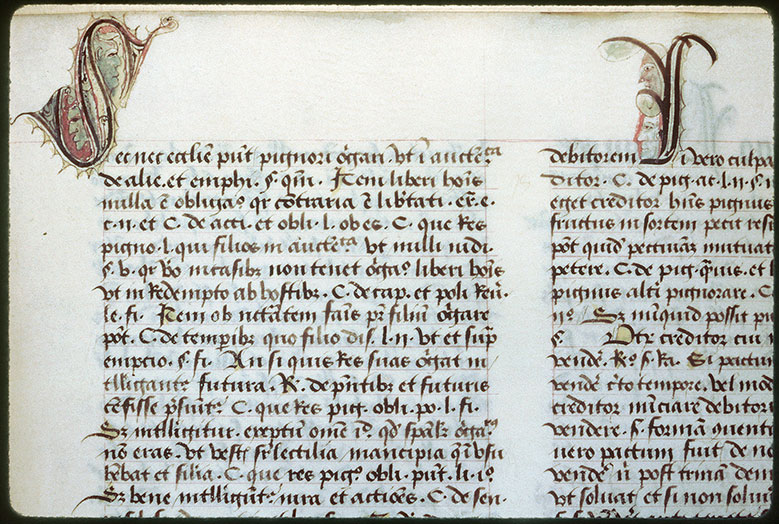 Sec nec ecclie pnt pignori obgari. Vt i auctca
de alie. et emphi. §. qm. Item liberi hois
nulla e obligao qr contraria e libtati. ex. e.
c. ii. et C. de acti. et obli. l. ob es. C. que res
pigno. l. qui filios in auctca vt nulli iudi.
§. v. qr vo in casibz non tenet obgao liberi hois
vt in redempto ab hostibz. C. de cap. et postli. reu.
le. fi. Item ob necitatem famis pr filium obgare
pot. C. de tempibz quo filio dis. l. ii. vt et supra
emptio. §. fi. An si quis res suas obgat in
tlligantr futura. R. de pntibz et futuris
cesisse psumitr. C. que res pig. obli. po. l. fi.
Sz intlligitur. exceptum omne id. qd spealr obgatus
non eras. vt vestes suplectilia mancipia que in vsu
hebat et filia. C. que res pigo. obli. punt. li. io.
Sz bene intlliguntr iura et actioes. C. de sen.
debitorem Si vero culpa
ditor. C. de pig. ac. l. ii. §. i
eget creditor hns pignus
fructus in sortem pecit resi
pot quid pecuniam mutuat
petere. C. de pig. et l
pignus altri pignorare. C.
no. Sz nunquid possit pi
§. Vtr creditor cui
vende. Ro. §. Ra. Si pactum
vende cto tempore. vel mod
creditor nunciare debitori
vendere. §. formam
vero pactum fuit de ne
vende n post trinam denu
vt soluat et si non solui